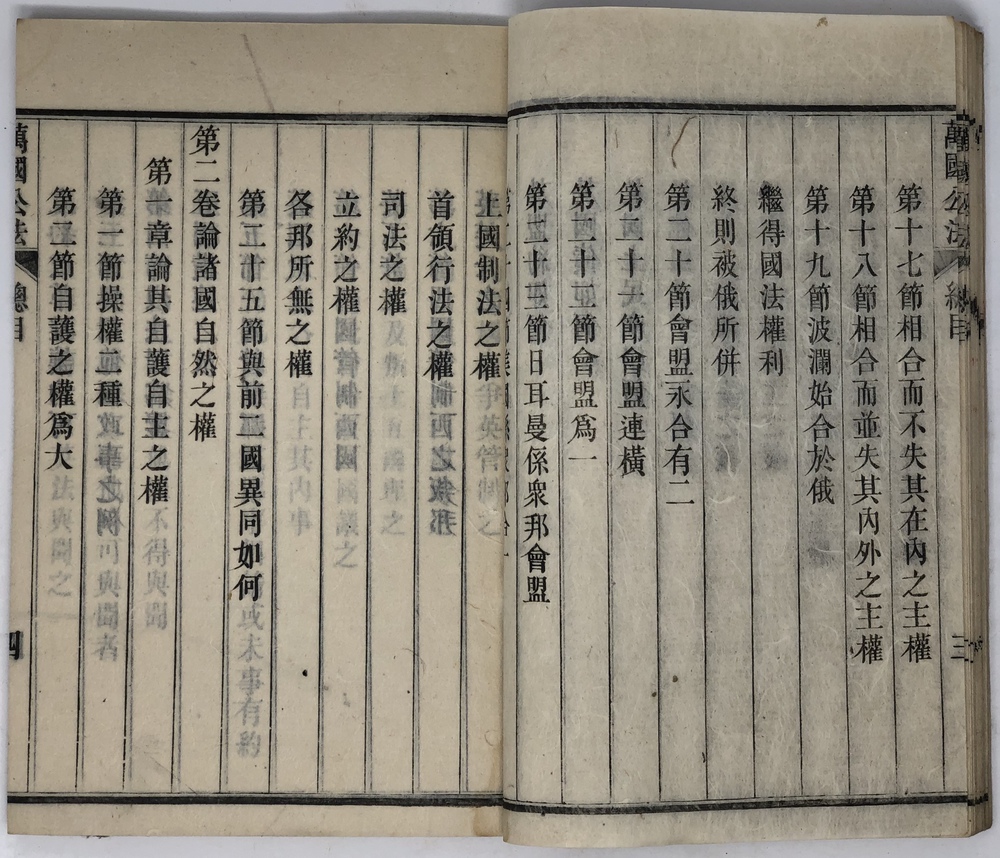 萬國公法 總目 三
第十七節相合而不失其在內之主權
第十八節相合而並失其內外之主權
第十九節波瀾始合於俄
繼得國法權利
終則被俄所併
第二十節會盟永合有二
第二十一節會盟連橫
第二十二節會盟爲一
第二十三節日耳曼係衆邦會盟
上國制法之權
首領行法之權
司法之權
立約之權
各邦所無之權
第二十五節與前二國異同如何
第二卷論諸國自然之權
第一章論其自護自主之權
第一節操權二種
第二節自護之權爲大
萬國公法 總目 四